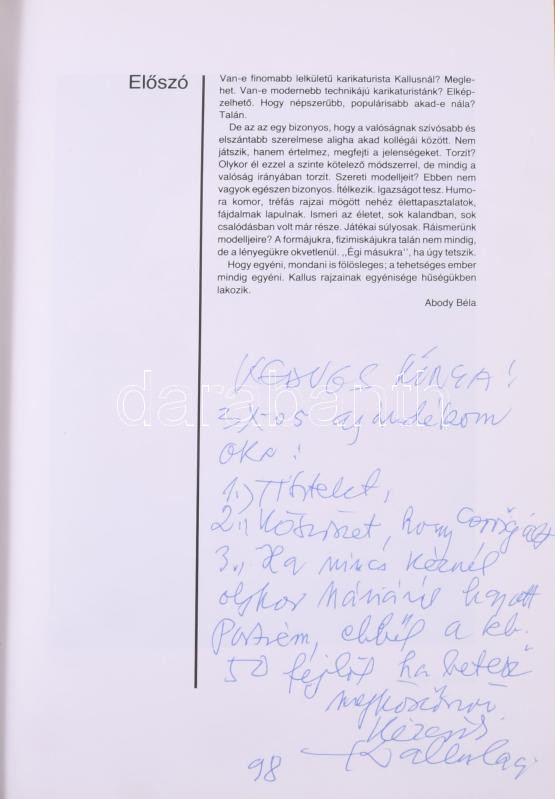 Előszó
Van-e finomabb lelkületű karikaturista Kallusnál? Megle-
het. Van-e modernebb technikájú karikaturistánk? Elkép-
zelhető. Hogy népszerűbb, populárisabb akad-e nála?
Talán.
De az az egy bizonyos, hogy a valóságnak szívósabb és
elszántabb szerelmese aligha akad kollégái között. Nem
játszik, hanem értelmez, megfejti a jelenségeket. Torzít?
Olykor él ezzel a szinte kötelező módszerrel, de mindig a
valóság irányában torzít. Szereti modelljeit? Ebben nem
vagyok egészen bizonyos. Ítélkezik. Igazságot tesz. Humo-
ra komor, tréfás rajzai mögött nehéz élettapasztalatok,
fájdalmak lapulnak. Ismeri az életet, sok kalandban, sok
csalódásban volt már része. Játékai súlyosak. Ráismerünk
modelljeire? A formájukra, fizimiskájukra talán nem mindig,
de a lényegükre okvetlenül. ,,Égi másukra'', ha úgy tetszik.
Hogy egyéni, mondani is fölösleges; a tehetséges ember
mindig egyéni. Kallus rajzainak egyénisége hűségükben
lakozik.
Abody Béla
KEDVES KINGA!
3x-os ajándékom
oka:
1.) Tisztelet,
2., Köszönet, hogy
3., Ha nincs kéznél
olykor
Portrém, ebből a kb.
50 fejből ha
megköszönni
98
darabanth